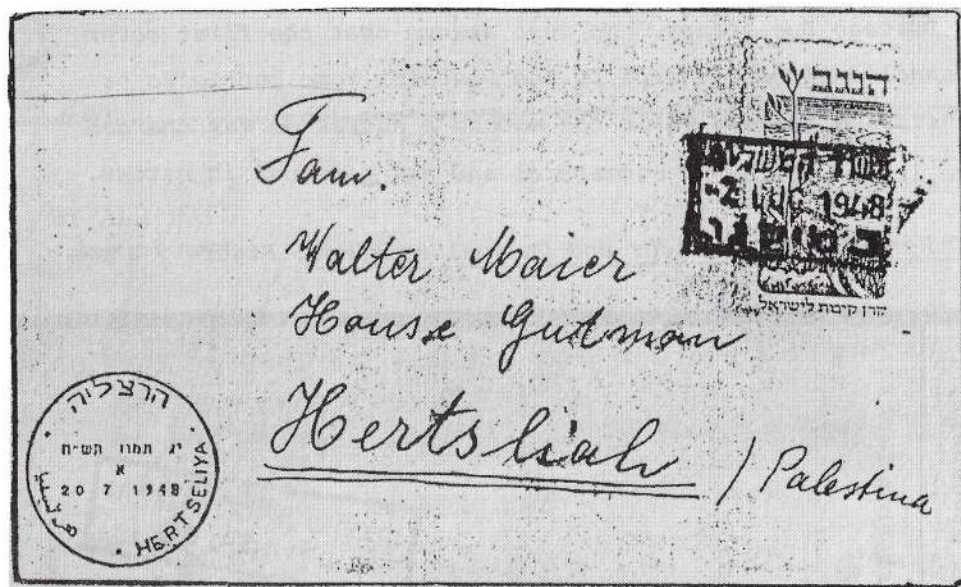 הנגב
1948
קרן קימת לישראל
Fam.
Walter Maier
House Gutman
Hertsliah / Palestina
הרצליה
יג תמוז תש״ח
א
20 7 1948
HERTSELIYA